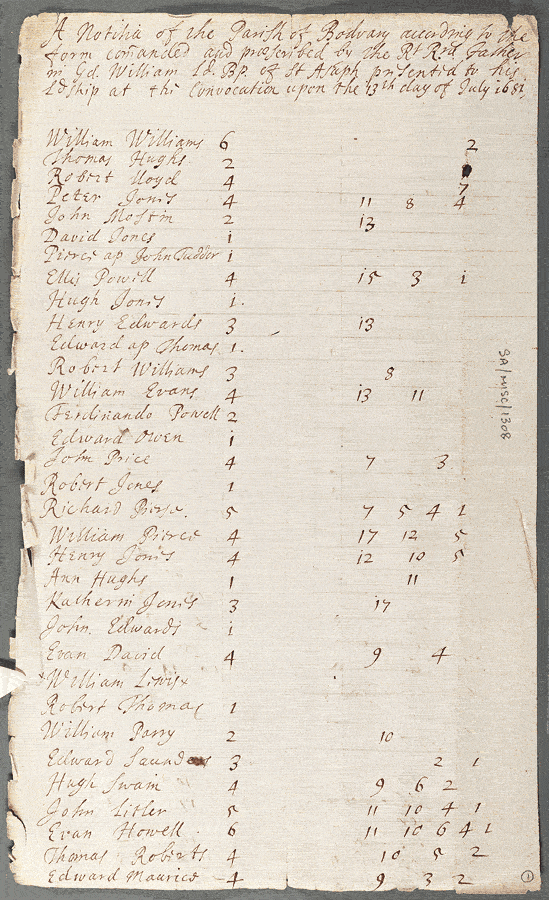 A Notitia of the Parish of Bodvary according to the
form com̃anded and præscribed by the Rt Rnd Father
in Gd. William Ld. Bp. of St Asaph presented to his
Ldship at the Convocation upon the 13th day of July 1681
William Williams 6 2
Thomas Hughs 2
Robert lloyd 4 7
Peter Jones 4 11 8 4
John Mostin 2 13
David Jones 1
Pierce ap John Tudder 1
Ellis Powell 4 15 3 1
Hugh Jones 1.
Henry Edwards 3 13
Edward ap Thomas 1.
Robert Williams 3 8
William Evans 4 13 11
Ferdinando Powell 2
Edward Owen 1
John Price 4 7 3
Robert Jones 1
Richard 5 7 5 4 1
William Pierce 4 17 12 5
Henry Jones 4 12 10 5
Ann Hughs 1 11
Katherin Jones 3 17
John Edwards 1
Evan David 4 9 4
William Lewis
Robert Thomas 1
William Parry 2 10
Edward Saunders 3 2 1
Hugh Swain 4 9 6 2
John Litler 5 11 10 4 1
Evan Howell 6 11 10 6 4 1
Thomas Roberts 4 10 5 2
Edward Maurice 4 9 3 2
SA/MISC/1308
1